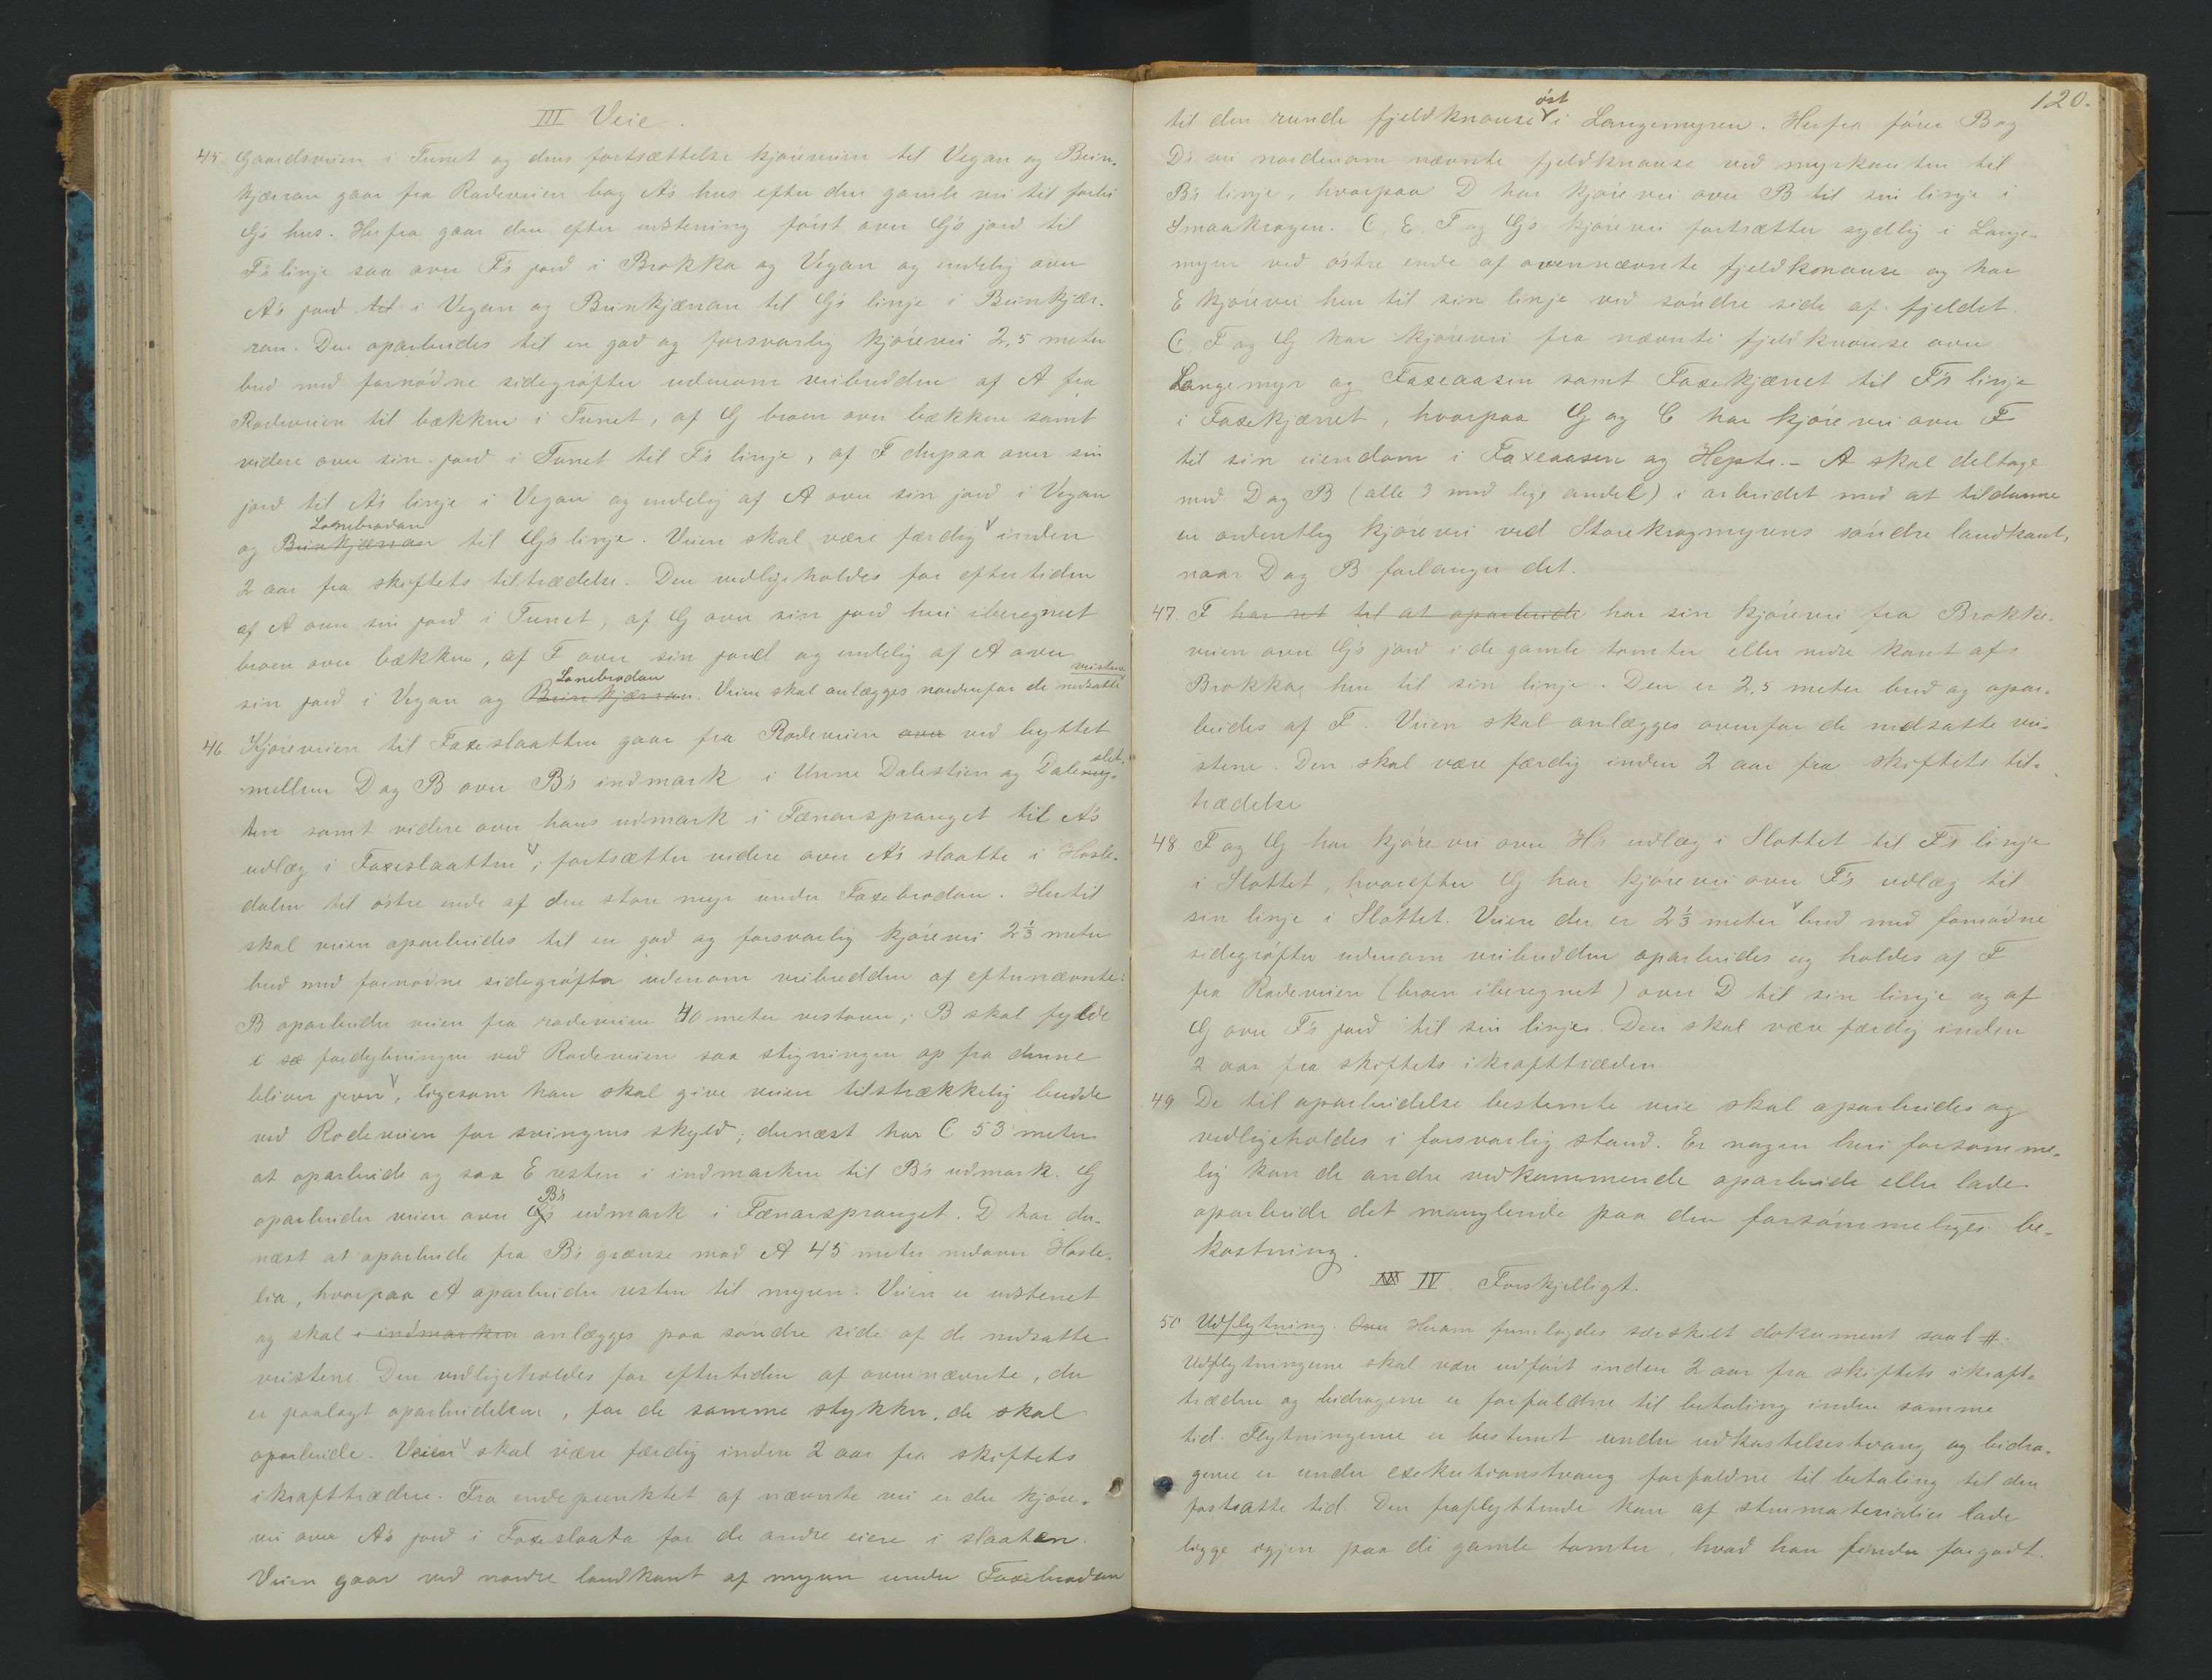 III Veie.
45. Gaardsveien i Tunet og dens fortsættelse kjøreveien til Vegan og Bein-
kjærran gaar fra Rodeveien bag A's hus efter den gamle vei til forbi
G's hus. Herfra gaar den efter udstening først over G's jord til
F's linje saa over F's jord i Brokka og Vegan og endelig over
A's jord til i Vegan og Beinkjærran til G's linje i Beinkjær-
ran. Den oparbeides til en god og forsvarlig kjørevei 2,5 meter
bred med fornødne sidegrøfter udenom veibredden af A fra
Rodeveien til bækken i Tunet, af G broen over bækken samt
videre over sin jord i Tunet til F's linje, af F derpaa over sin
jord til A's linje i Vegan og endelig af A over sin jord i Vegan
Lonebrodan
og Beinkjærran til G's linje. Veien skal være færdig inden
2 aar fra skiftets tiltrædelse. Den vedligeholdes for eftertiden
af A over sin jord i Tunet, af G over sin jord heri iberegnet
broen over bækken, af F over sin jord og endelig af A over
Lonebrodan veistene
sin jord i Vegan og Beinkjærran. Veien skal anlægges nordenfor de nedsatte
46. Kjøreveien til Faxeslaatten gaar fra Rodeveien over ved byttet
slet-
mellem D og B over B's indmark i Unne Dalestien og Dalemy-
ten samt videre over hans udmark i Fænarspranget til A's
udlæg i Faxeslaatten; fortsætter videre over A's slaatte i Hasle-
dalen til østre ende af den store myr under Faxebrodan. Hertil
skal veien oparbeides til en god og forsvarlig kjørevei 2⅓ meter
bred med fornødne sidegrøfter udenom veibredden af efternævnte:
B oparbeider veien fra rodeveien 40 meter vestover; B skal fylde
i fordybningen ved Rodeveien saa stigningen op fra denne
bliver jevn, ligesom han skal give veien tilstrækkelig bredde
ved Rodeveien for svingens skyld; dernæst har C 53 meter
at oparbeide og saa E resten i indmarken til B's udmark. G
B's
oparbeider veien over G's udmark i Fænarspranget. D har der-
næst at oparbeide fra B's grænse mod A 45 meter nedover Hasle-
lia, hvorpaa A oparbeider resten til myren. Veien er udstenet
og skal i indmarken anlægges paa søndre side af de nedsatte
veistene. Den vedligeholdes for eftertiden af ovennævnte, der
er paalagt oparbeidelsen, for de samme stykker, de skal
oparbeide. Veien skal være færdig inden 2 aar fra skiftets
ikrafttræden. Fra endepunktet af nævnte vei er der kjøre-
vei over A's jord i Faxeslaata for de andre eiere i slaatten.
Veien gaar ved nordre landkant af myren under Faxebrodan
120.
øst
til den runde fjeldknause i Langemyren. Herfra fører B og
D's vei nordenom nævnte fjeldknause ved myrkanten til
B's linje, hvorpaa D har kjørevei over B til sin linje i
Smaakrogen. C. E. F og G's kjørevei fortsætter sydlig i Lange-
myren ved østre ende af ovennævnte fjeldknause og har
E kjørevei hen til sin linje ved søndre side af fjeldet.
C. F og G har kjørevei fra nævnte fjeldknause over
Langemyr og Faxeaasen samt Faxekjærret til F's linje
i Faxekjærret, hvorpaa G og C har kjørevei over F
til sin eiendom i Faxeaasen og Hepte. - A skal deltage
med D og B (alle 3 med lige andel) i arbeidet med at tildanne
en ordentlig kjørevei ved Storekrogmyrens søndre landkant,
naar D og B forlanger det.
47. F har ret til at oparbeide har sin kjørevei fra Brokke-
veien over G's jord i de gamle tomter eller nedre kant af
Brokka, hen til sin linje. Den er 2,5 meter bred og opar-
beides af F. Veien skal anlægges ovenfor de nedsatte vei-
stene. Den skal være færdig inden 2 aar fra skiftets til-
trædelse
48. F og G har kjørevei over H's udlæg i Slottet til F's linje
i Slottet, hvorefter G har kjørevei over F's udlæg til
sin linje i Slottet. Veien der er 2⅓ meter bred med fornødne
sidegrøfter udenom veibredden oparbeides og holdes af F
fra Rodeveien (broen iberegnet) over D til sin linje og af
G over F's jord til sin linje. Den skal være færdig inden
2 aar fra skiftets ikrafttræden
49 De til oparbeidelse bestemte veie skal oparbeides og
vedligeholdes i forsvarlig stand. Er nogen heri forsømme-
lig kan de andre vedkommende oparbeide eller lade
oparbeide det manglende paa den forsømmeliges be-
kostning.
IV. Forskjelligt.
50 Udflytning. Over Herom fremlagdes særskilt dokument saal #.
Udflytningerne skal være udført inden 2 aar fra skiftets ikraft-
træden og bidragene er forfaldne til betaling inden samme
tid. Flytningerne er bestemt under udkastelsestvang og bidra-
gene er under exekutionstvang forfaldne til betaling til den
fastsatte tid. Den fraflyttende kan af stenmaterialier lade
ligge igjen paa de gamle tomter, hvad han finder forgodt.